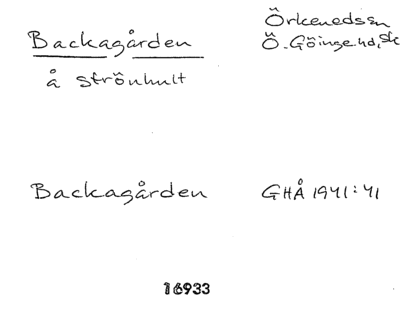 Backagården
å strönhult
Örkenedssn
Ö. Göinge hd, Sk
Backagården
GHÅ 1941:41
16933